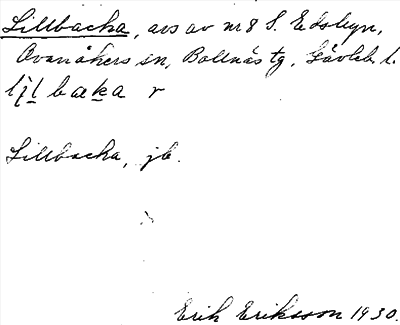 Lillbacka, avs av nr 8 S. Edsbyn,
Ovanåkers sn, Bollnäs tg, Gävleb. l.
lìl bæka r
Lillbacka, jb.
Erik Eriksson 1930.